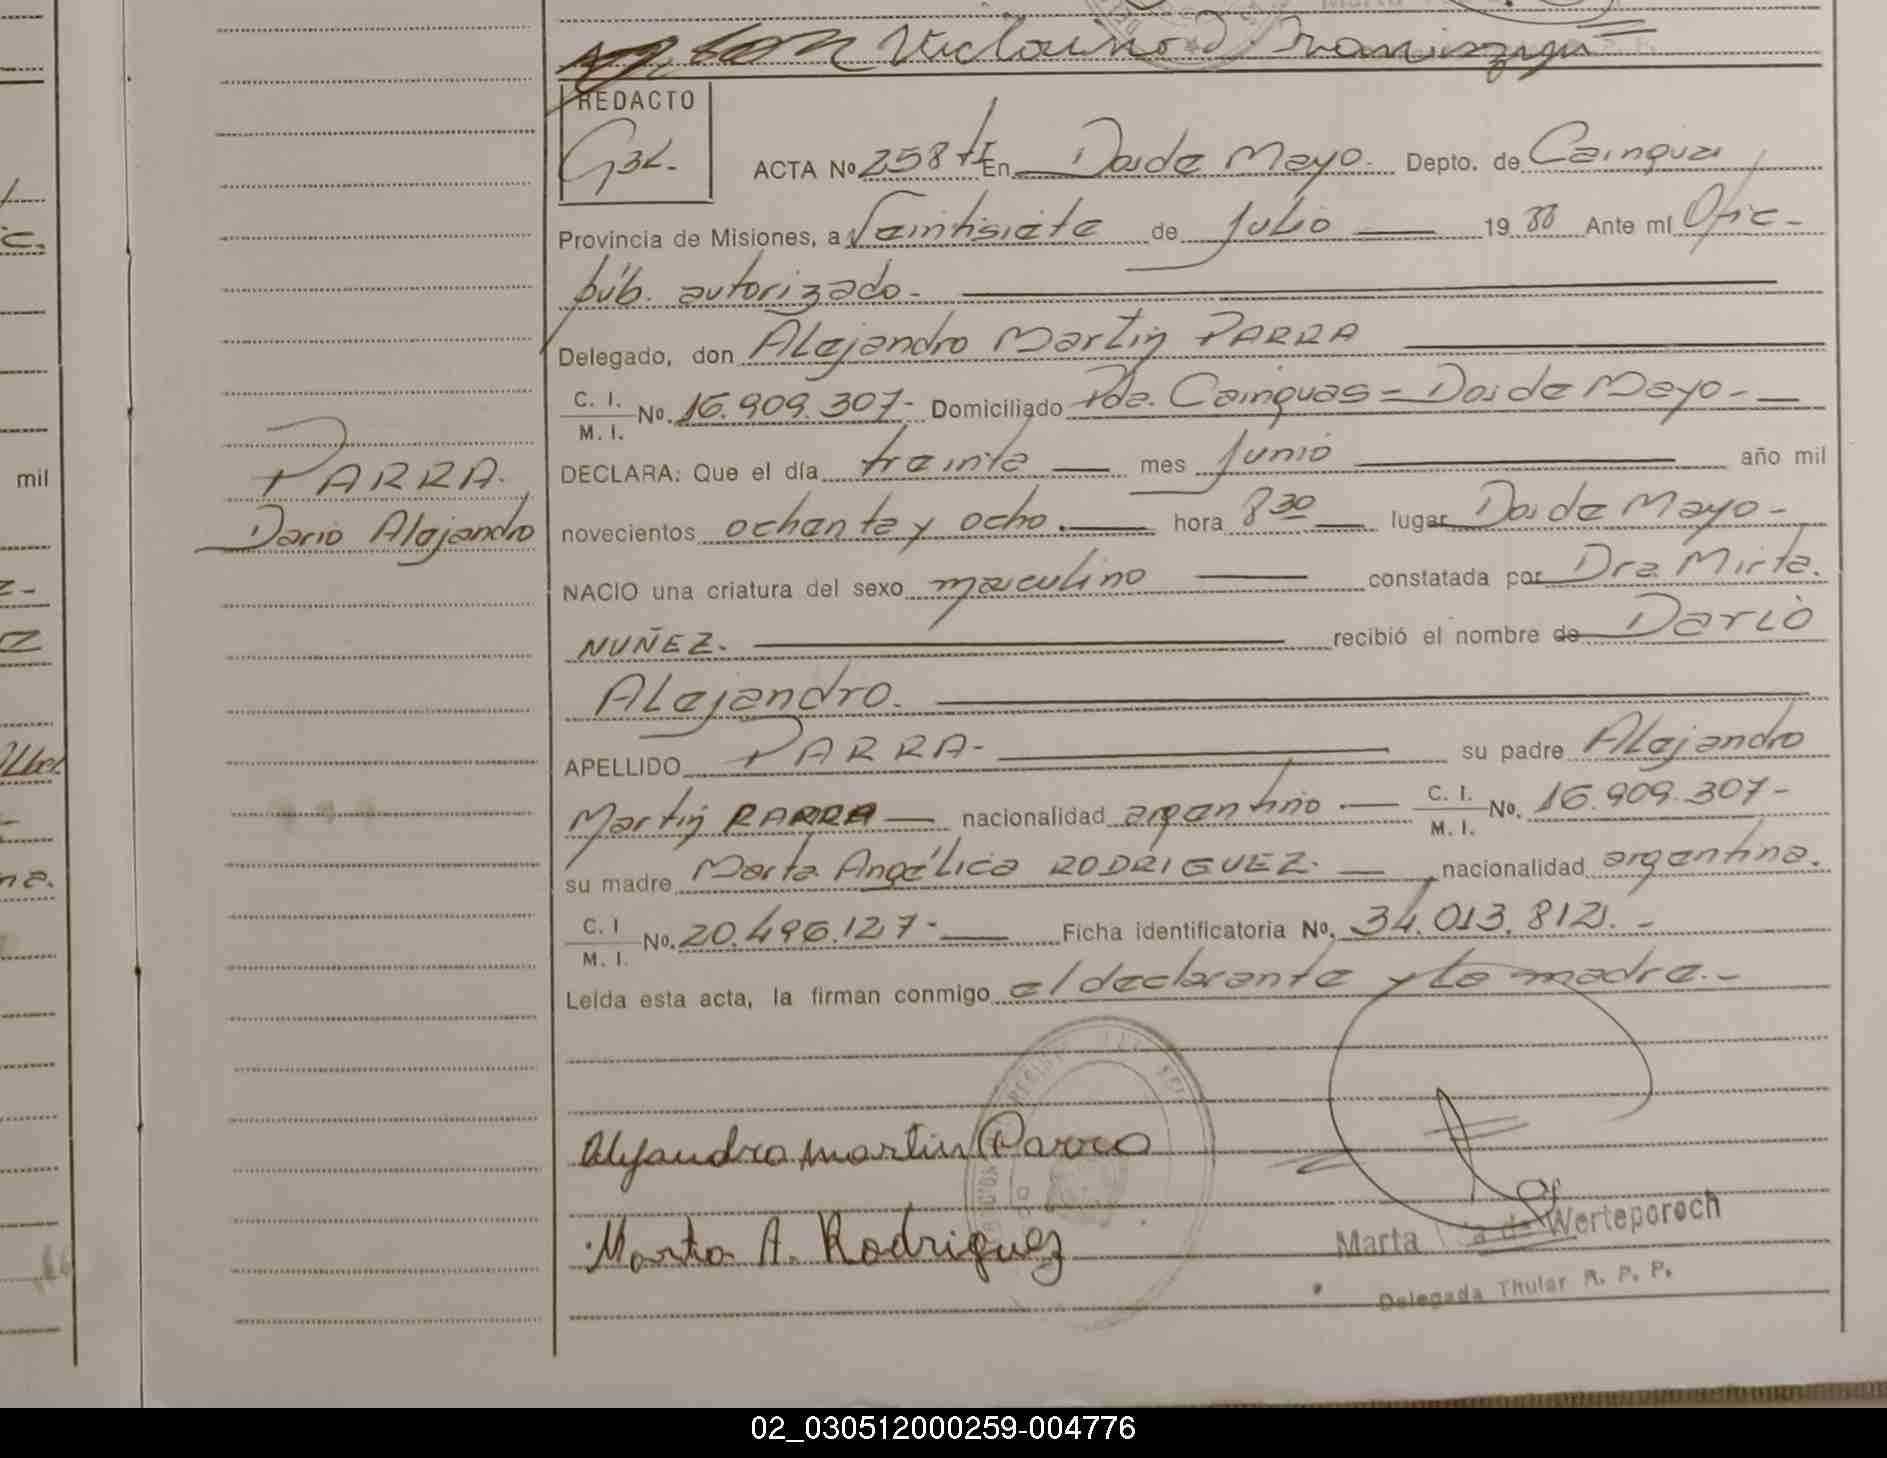 REDACTO
ACTA Nº 258 tI En Dos de Mayo. Depto. de Cainguas
Provincia de Misiones, a Veintisiete de Julio 19 88 Ante mí Ofic.
púb. autorizado.
Delegado, don Alejandro Martin PARRA
C. I. / M. I. No. 16.909.307- Domiciliado Pda. Cainguas = Dos de Mayo -
DECLARA: Que el día treinta mes Junio año mil
novecientos ochenta y ocho. hora 8 30 lugar Dos de Mayo -
NACIO una criatura del sexo masculino constatada por Dra. Mirta
NUÑEZ. recibió el nombre de Dario
Alejandro.
APELLIDO PARRA- su padre Alejandro
Martin PARRA nacionalidad argentino C. I. / M. I. No. 16.909.307-
su madre Marta Angélica RODRIGUEZ. nacionalidad argentina.
C. I / M. I. No. 20.496.127- Ficha identificatoria No. 34.013.812. -
Leída esta acta, la firman conmigo el declarante y la madre. -
PARRA.
Dario Alejandro
Alejandro Martin Parra
Marta A. Rodriguez
Marta de Werteporoch
Delegada Titular R. P. P.
mil
02_030512000259-004776